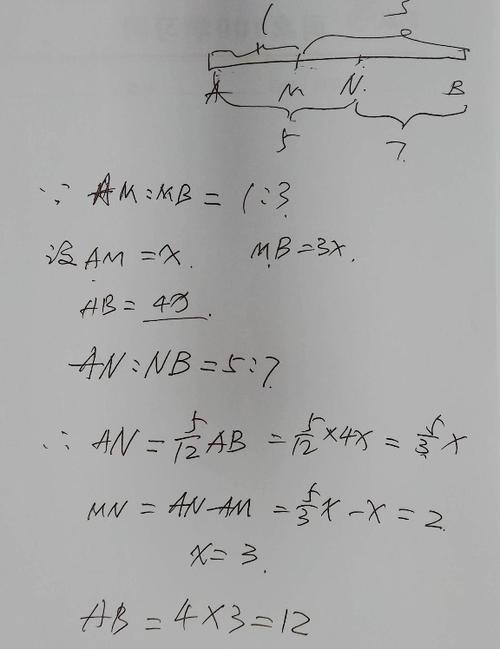 1 3
A M N B
5 7
∵ AM:MB = 1:3
设 AM = x. MB = 3x.
AB = 4x.
AN:NB = 5:7
∴ AN = 5/12 AB = 5/12 × 4x = 5/3 x
MN = AN-AM = 5/3 x - x = 2
x = 3.
AB = 4 × 3 = 12